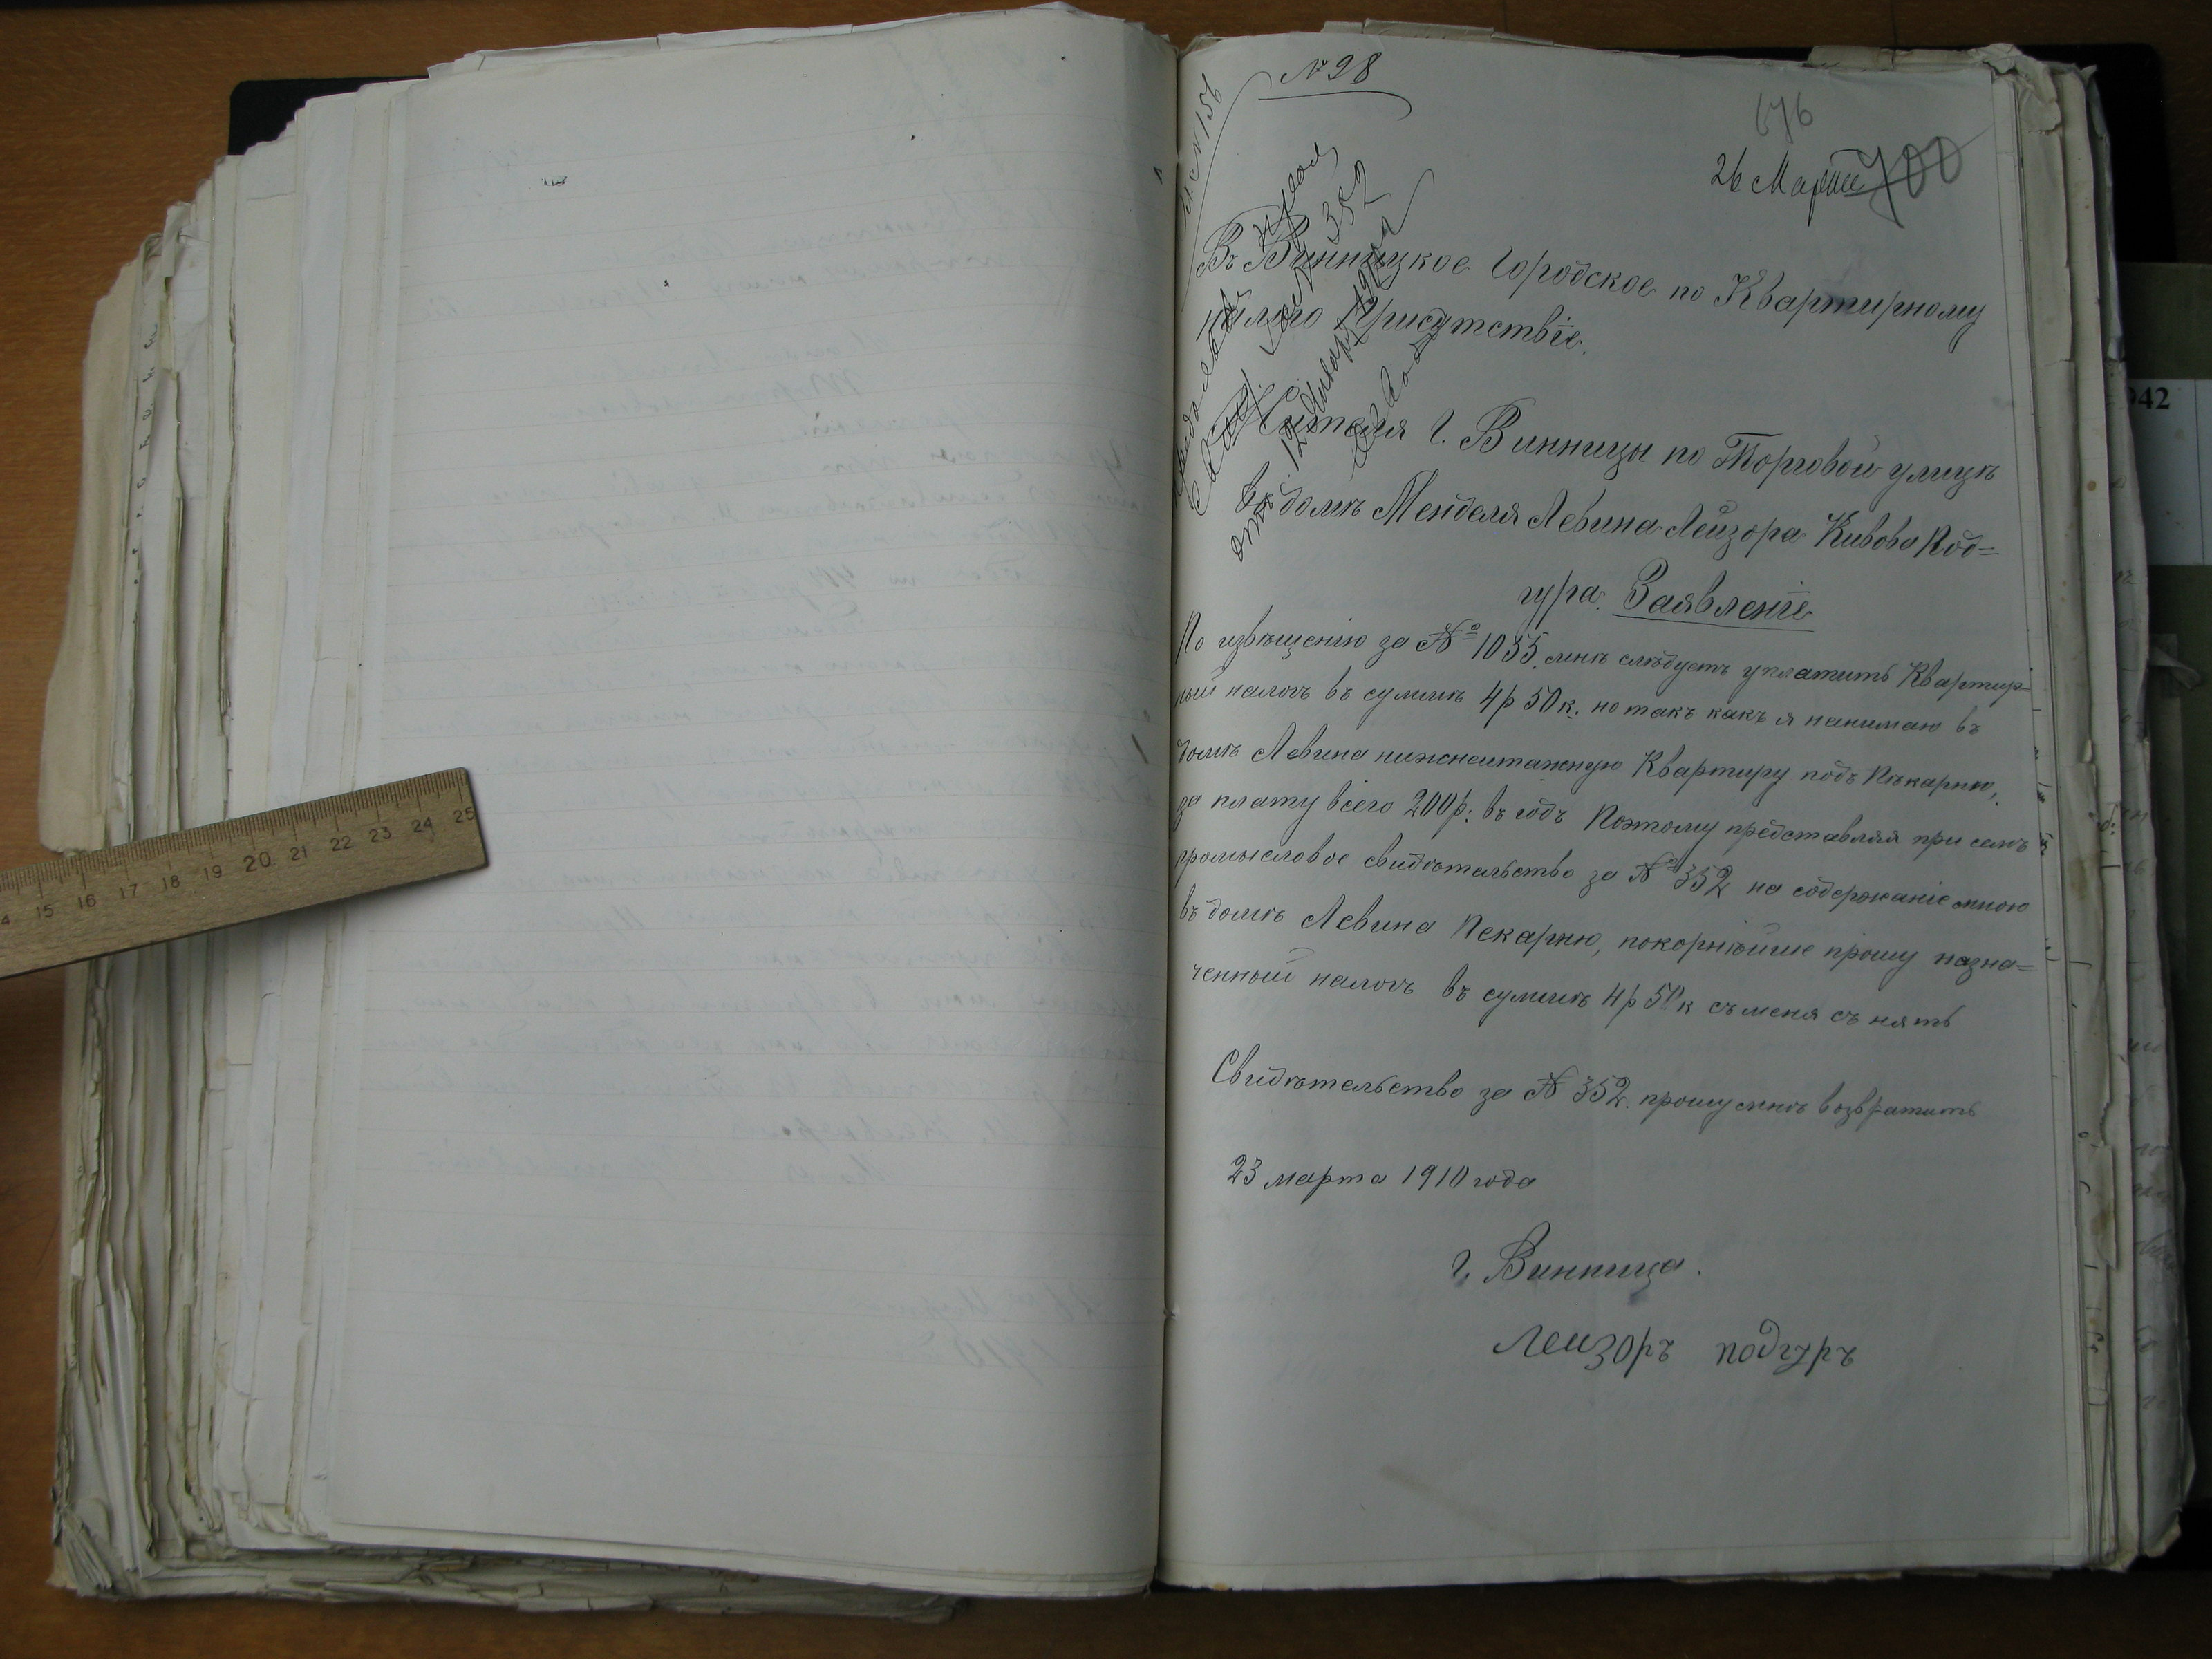 № 28
676
26 Марта 700
Въ Винницкое Городское по Квартирному
налогу Присутствіе.
Жителя г. Винницы по Торговой улицѣ
въ домѣ Менделя Левина Лейзора Кивова Под=
гура. Заявленіе
По извѣщенію за № 1055. мнѣ слѣдуетъ уплатить Квартир=
ный налогъ въ суммѣ 4р 50к. но такъ какъ я нанимаю въ
домѣ Левина нижнеэтажную Квартиру подъ Пѣкарню,
за плату всего 200р. въ годъ Поэтому представляя при семъ
промысловое свидѣтельство за № 352 на содержаніе мною
въ домѣ Левина Пекарню, покорнѣйше прошу назна=
ченный налогъ въ суммѣ 4р 50к съ меня снять
Свидѣтельство за № 352. прошу мнѣ возвратить
23 марта 1910 года
г. Винница.
Леизоръ подгуръ
№ 156
352
14 15 16 17 18 19 20 21 22 23 24 25
942